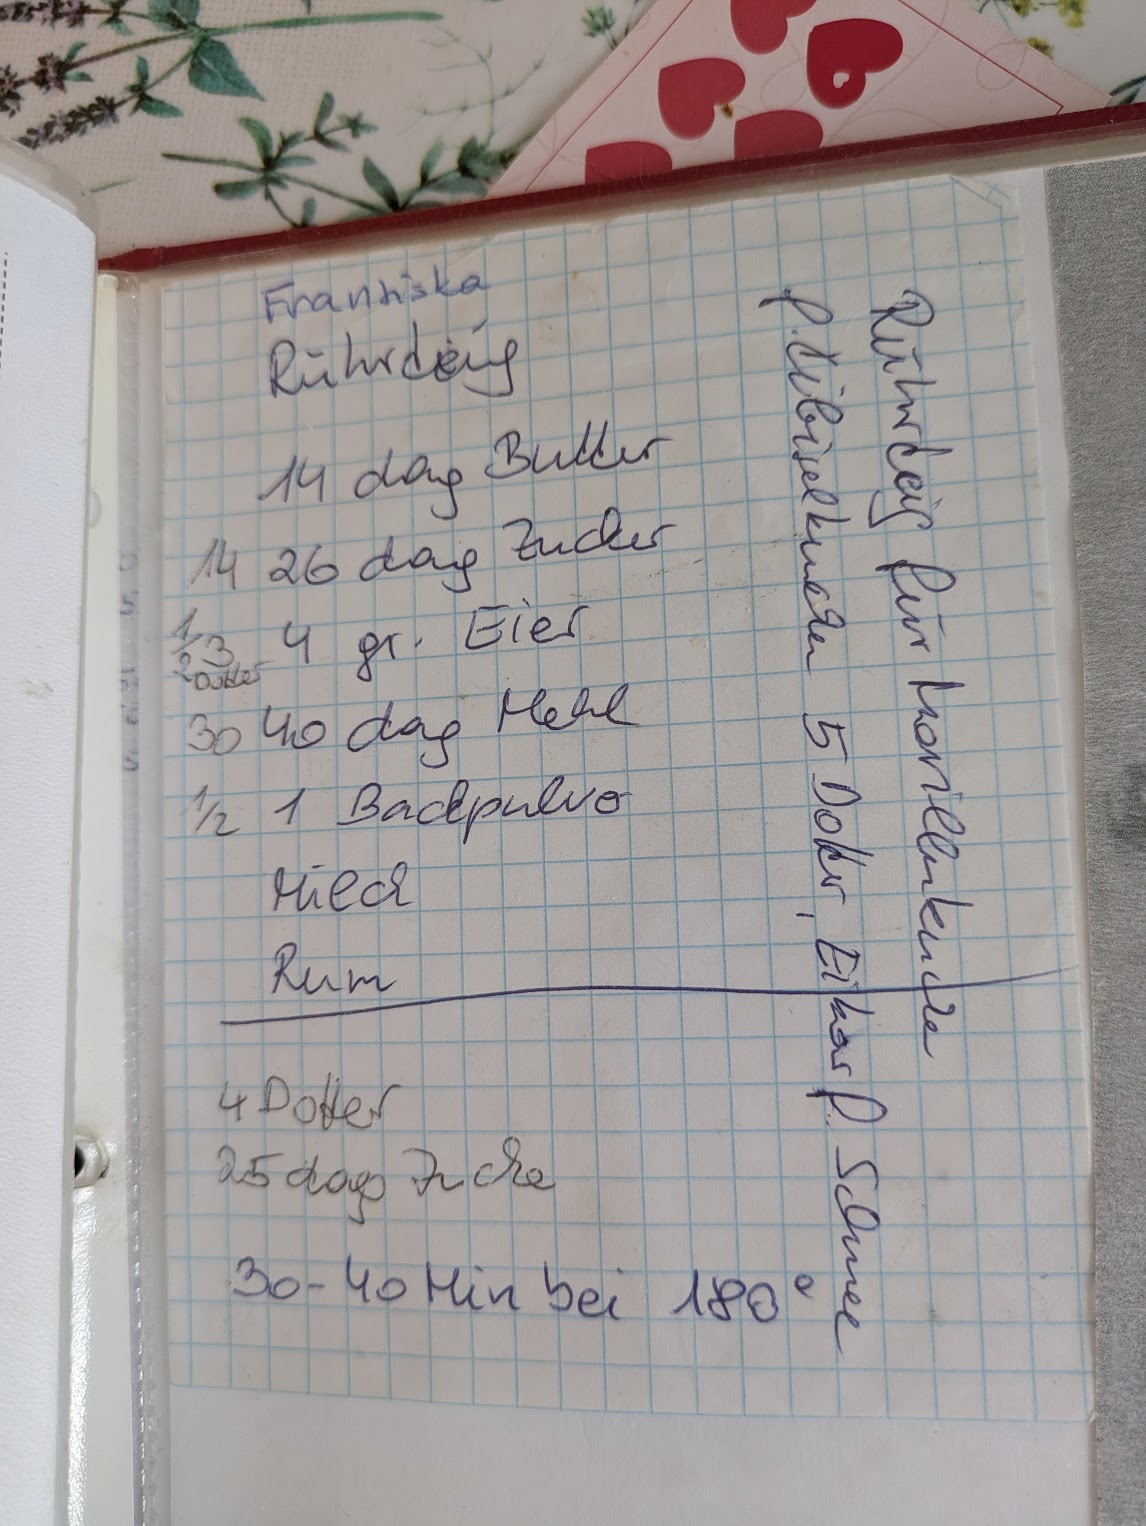 Franziska
Rührteig
14 dag Butter
14 26 dag Zucker
1/2 3 4 gr. Eier
Dotter
30 40 dag Mehl
1/2 1 Backpulver
Milch
Rum
4 Dotter
25 dag Zucker
30-40 Min bei 180°
Rührteig für Marillenkuchen
f. Ribiselkuchen 5 Dotter, Eiklar f. Schnee